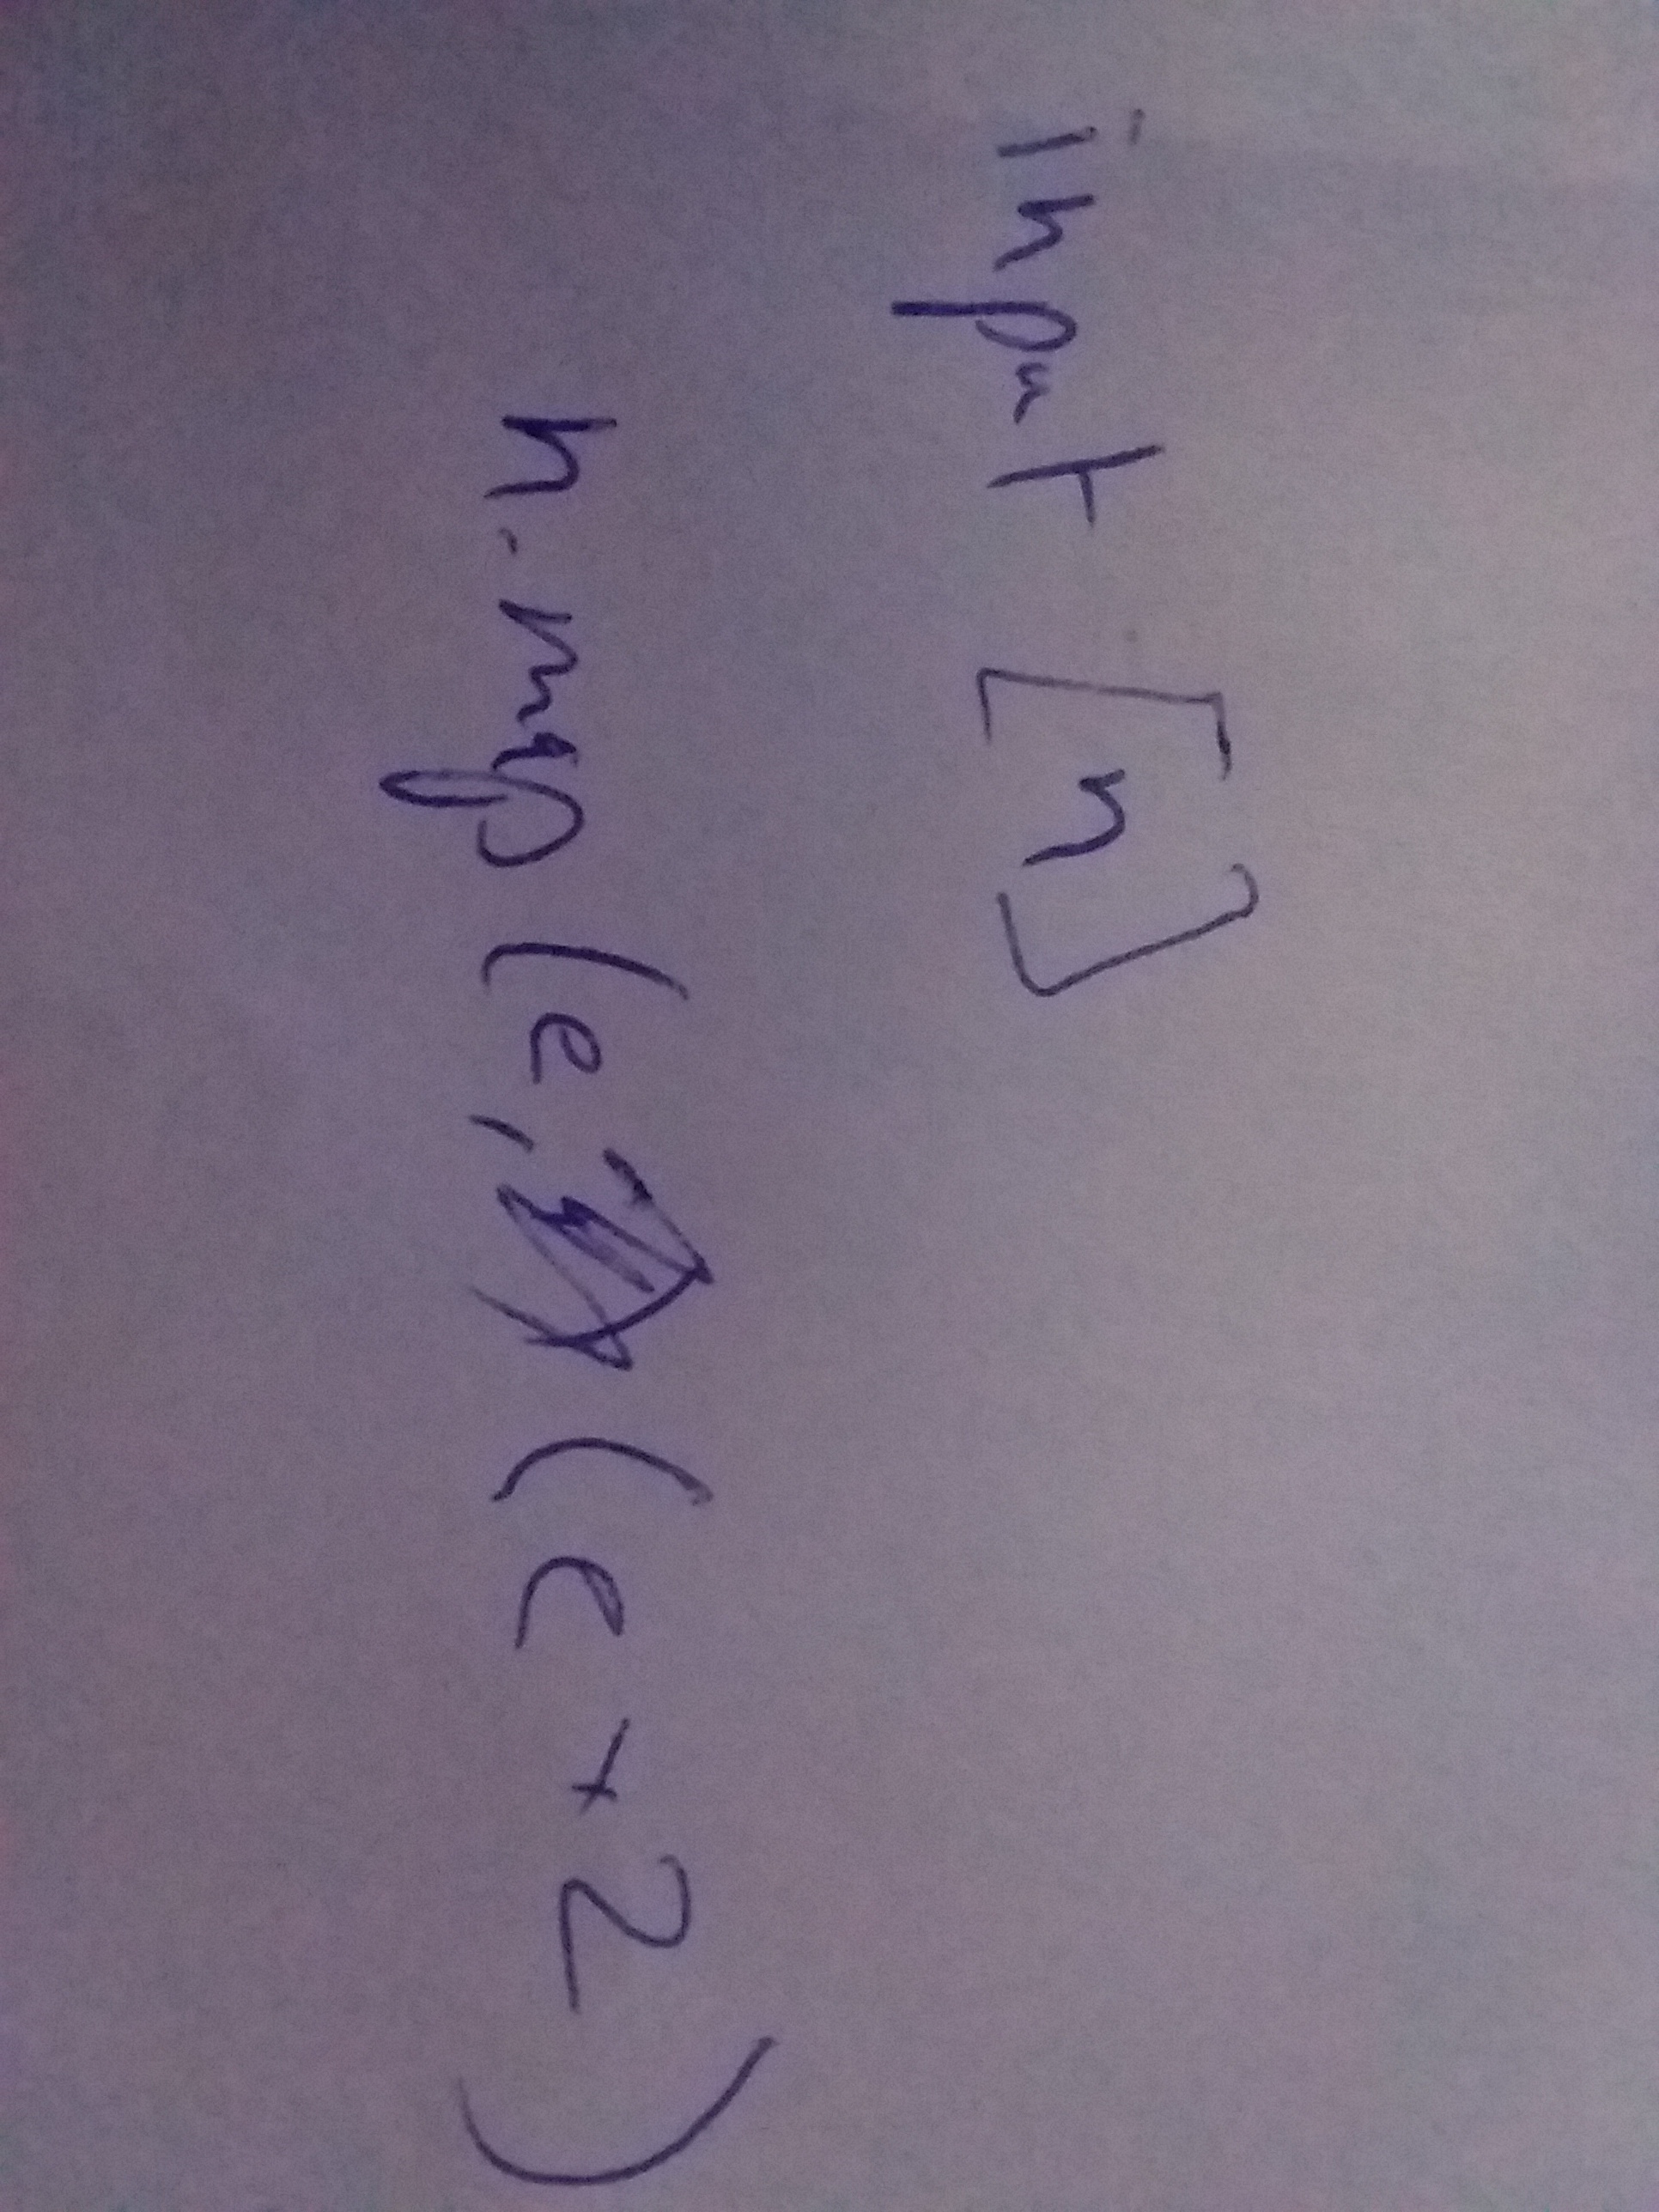 input [n]
n.map (e, (e + 2)